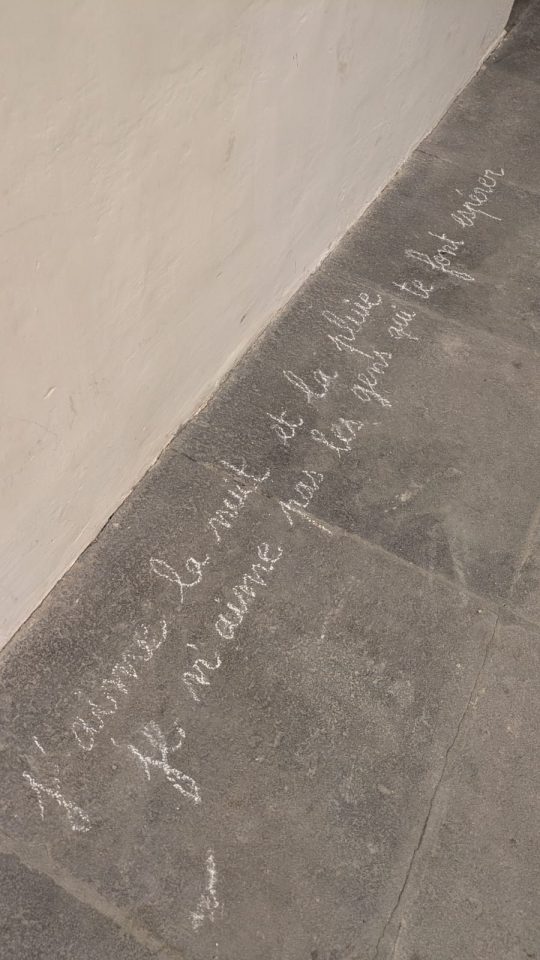 J'aime la nuit et la pluie
Je n'aime pas les gens qui te font espérer